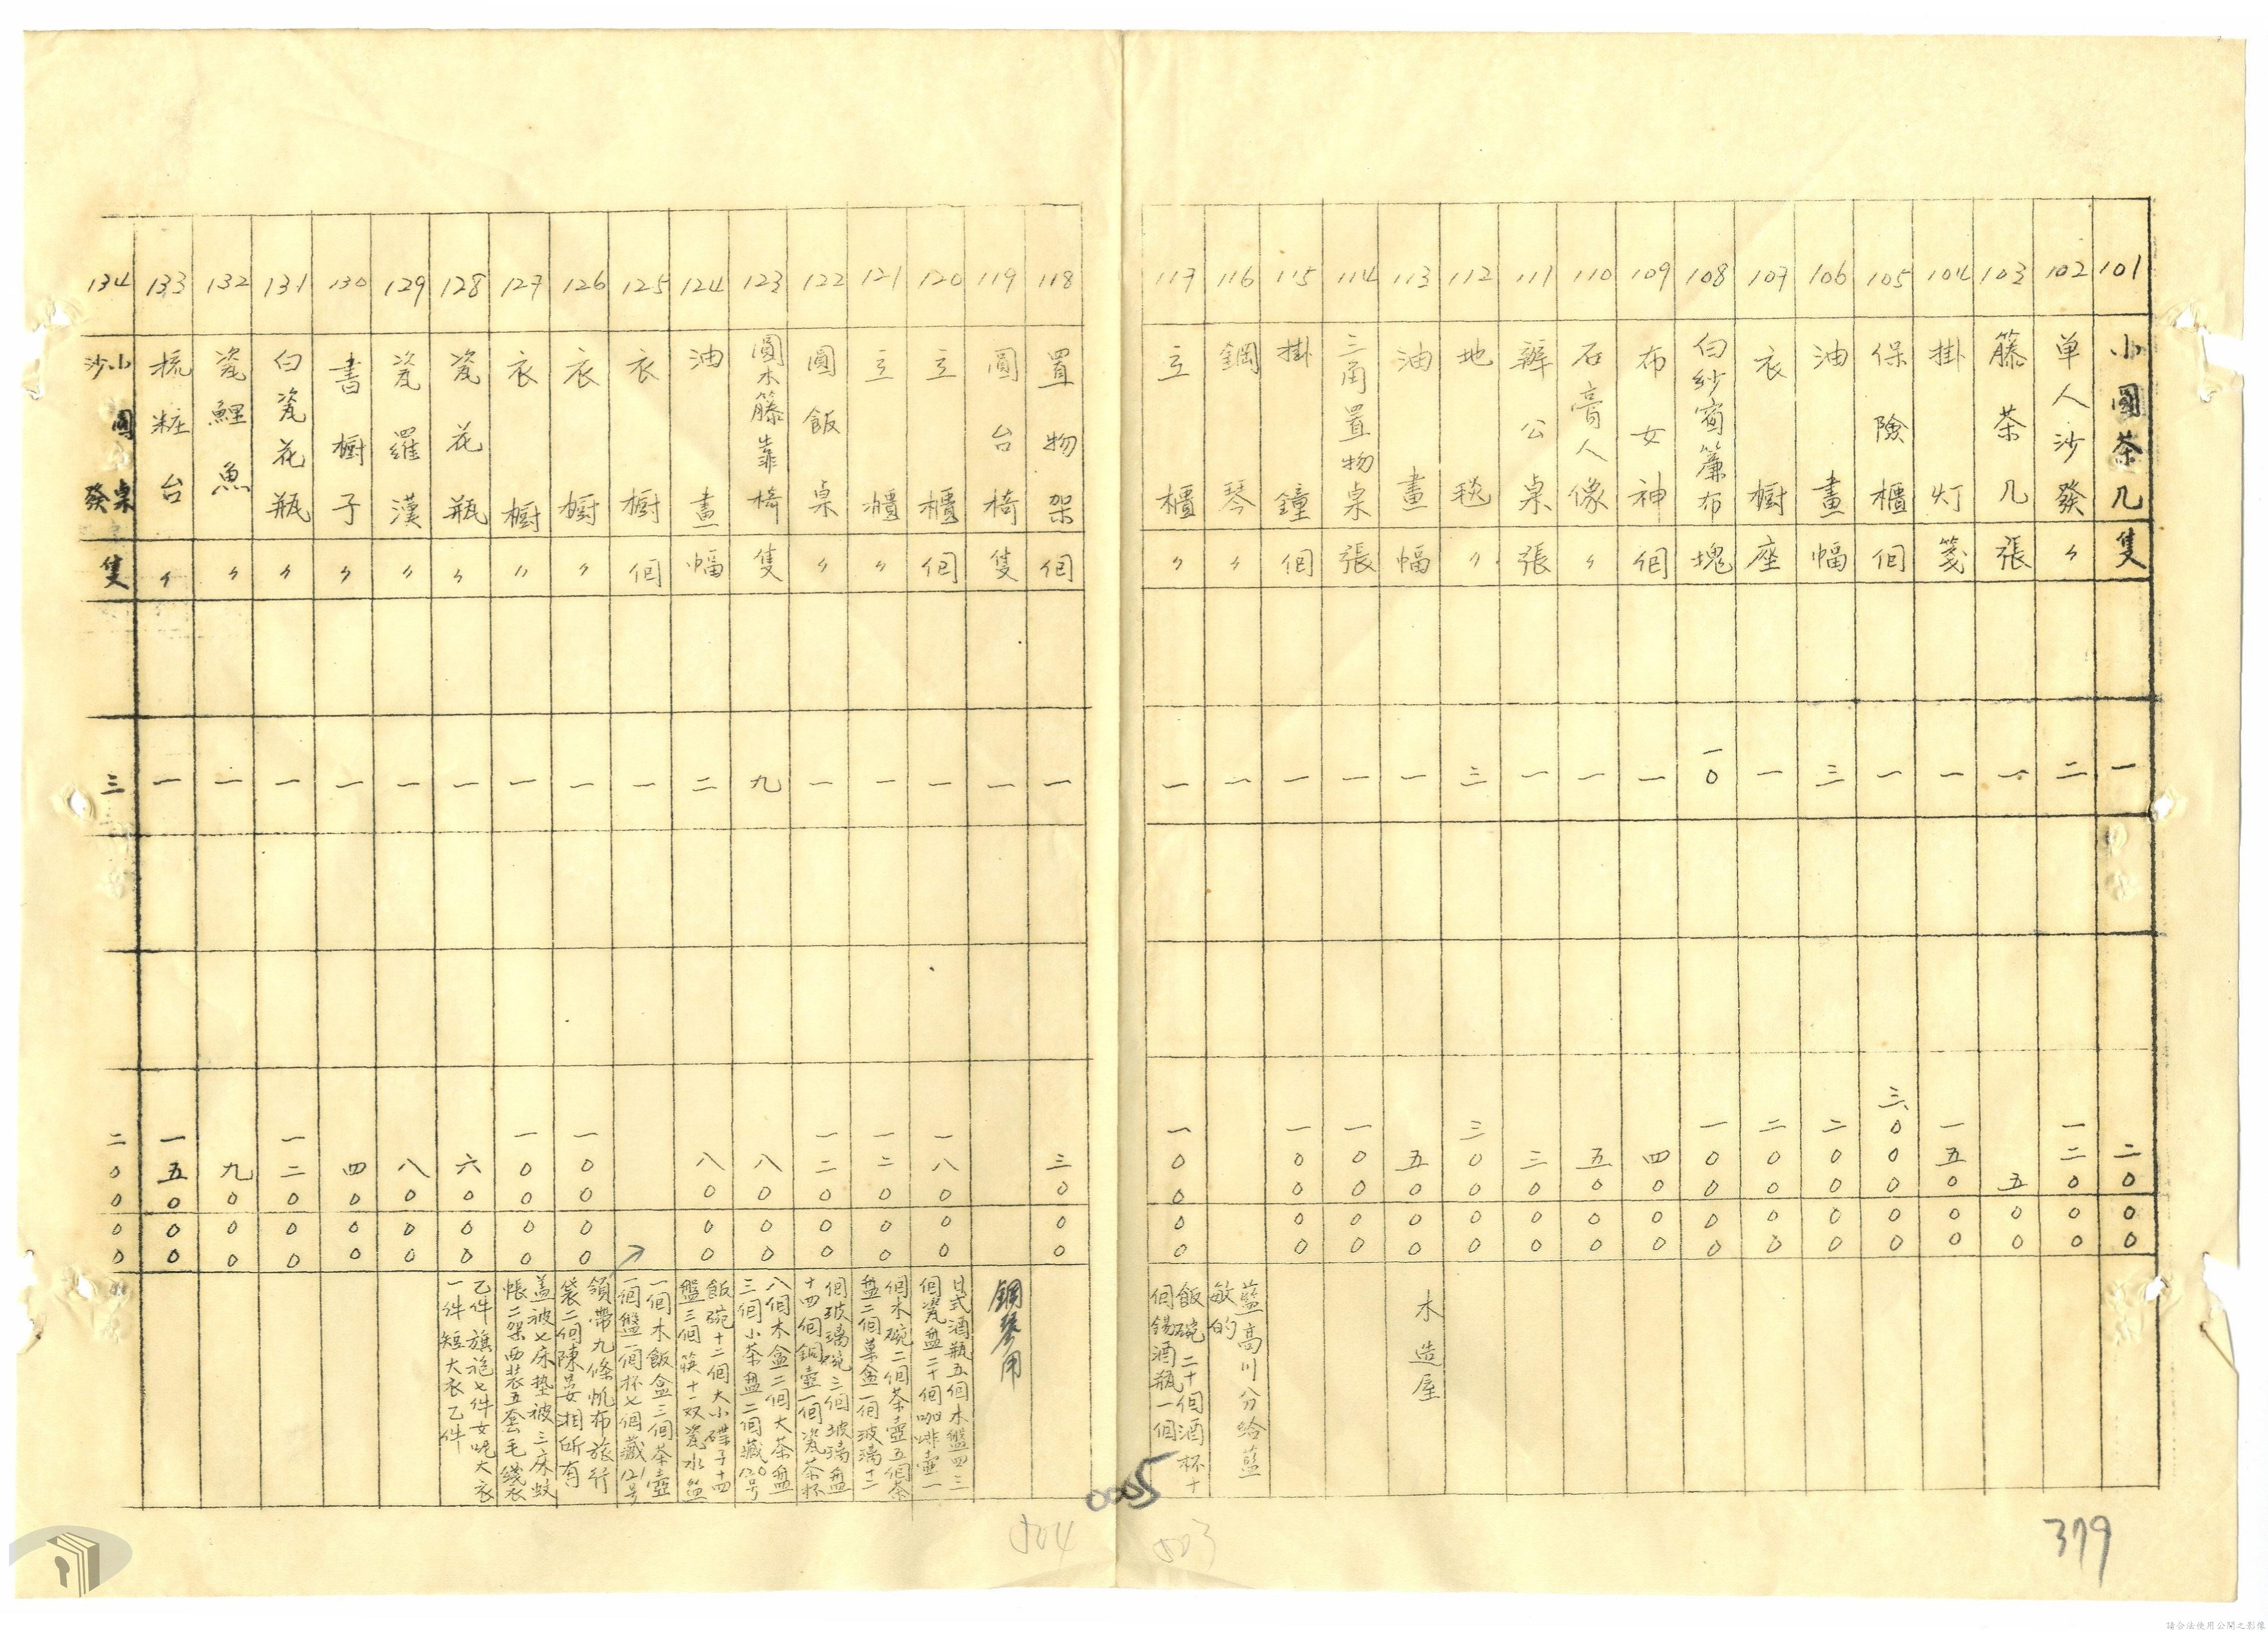 101 小圓茶几 隻 一 二0 00
102 单人沙發 〃 二 一二0 00
103 籐茶几 張 一 五 00
104 掛灯 箋 一 一五0 00
105 保險櫃 個 一 三000 00
106 油畫 幅 三 二00 00
107 衣櫥 座 一 二00 00
108 白紗窗簾布 塊 一0 一00 00
109 布女神 個 一 四0 00
110 石膏人像 〃 一 五0 00
111 辦公桌 張 一 三0 00 木造屋
112 地毯 〃 三 三00 00
113 油畫 幅 一 五0 00
114 三角置物桌 張 一 一00 00
115 掛鐘 個 一 一00 00
116 鋼琴 〃 一 藍高川分給藍敏的
117 立櫃 〃 一 一00 00 飯碗二十個酒杯十個錫酒瓶一個
118 置物架 個 一 三0 00
119 圓台椅 隻 一 鋼琴用
120 立櫃 個 一 一八0 00 日式酒瓶五個木盤四三個瓷盘二十個咖啡壺一
121 立櫃 〃 一 一二0 00 個木碗二個茶壺五個茶盘二個菓盒一個玻璃十二
122 圓飯桌 〃 一 一二0 00 個玻璃碗三個玻璃盘十四個銅壺一個瓷茶杯
123 圓木籐靠椅 隻 九 八0 00 八個木盒二個大茶盘三個小茶盘二個藏120号
124 油畫 幅 二 八0 00 飯碗十二個大小碟子十四盤三個筷十一双瓷水盤
125 衣櫥 個 一 一個木飯盒三個茶壺一個盤一個杯七個藏121号
126 衣櫥 〃 一 一00 00 領帶九條帆布旅行袋二個陳晏湘所有
127 衣櫥 〃 一 一00 00 盖被七床墊被三床蚊帳二架西装五套毛綫衣
128 瓷花瓶 〃 一 六0 00 乙件旗袍七件女呢大衣一件短大衣乙件
129 瓷羅漢 〃 一 八0 00
130 書櫥子 〃 一 四0 00
131 白瓷花瓶 〃 一 一二0 00
132 瓷鯉魚 〃 一 九0 00
133 梳粧台 〃 一 一五0 00
134 小圓桌沙發 隻 三 二00 00
0005
504
503
379
請合法使用公開之影像